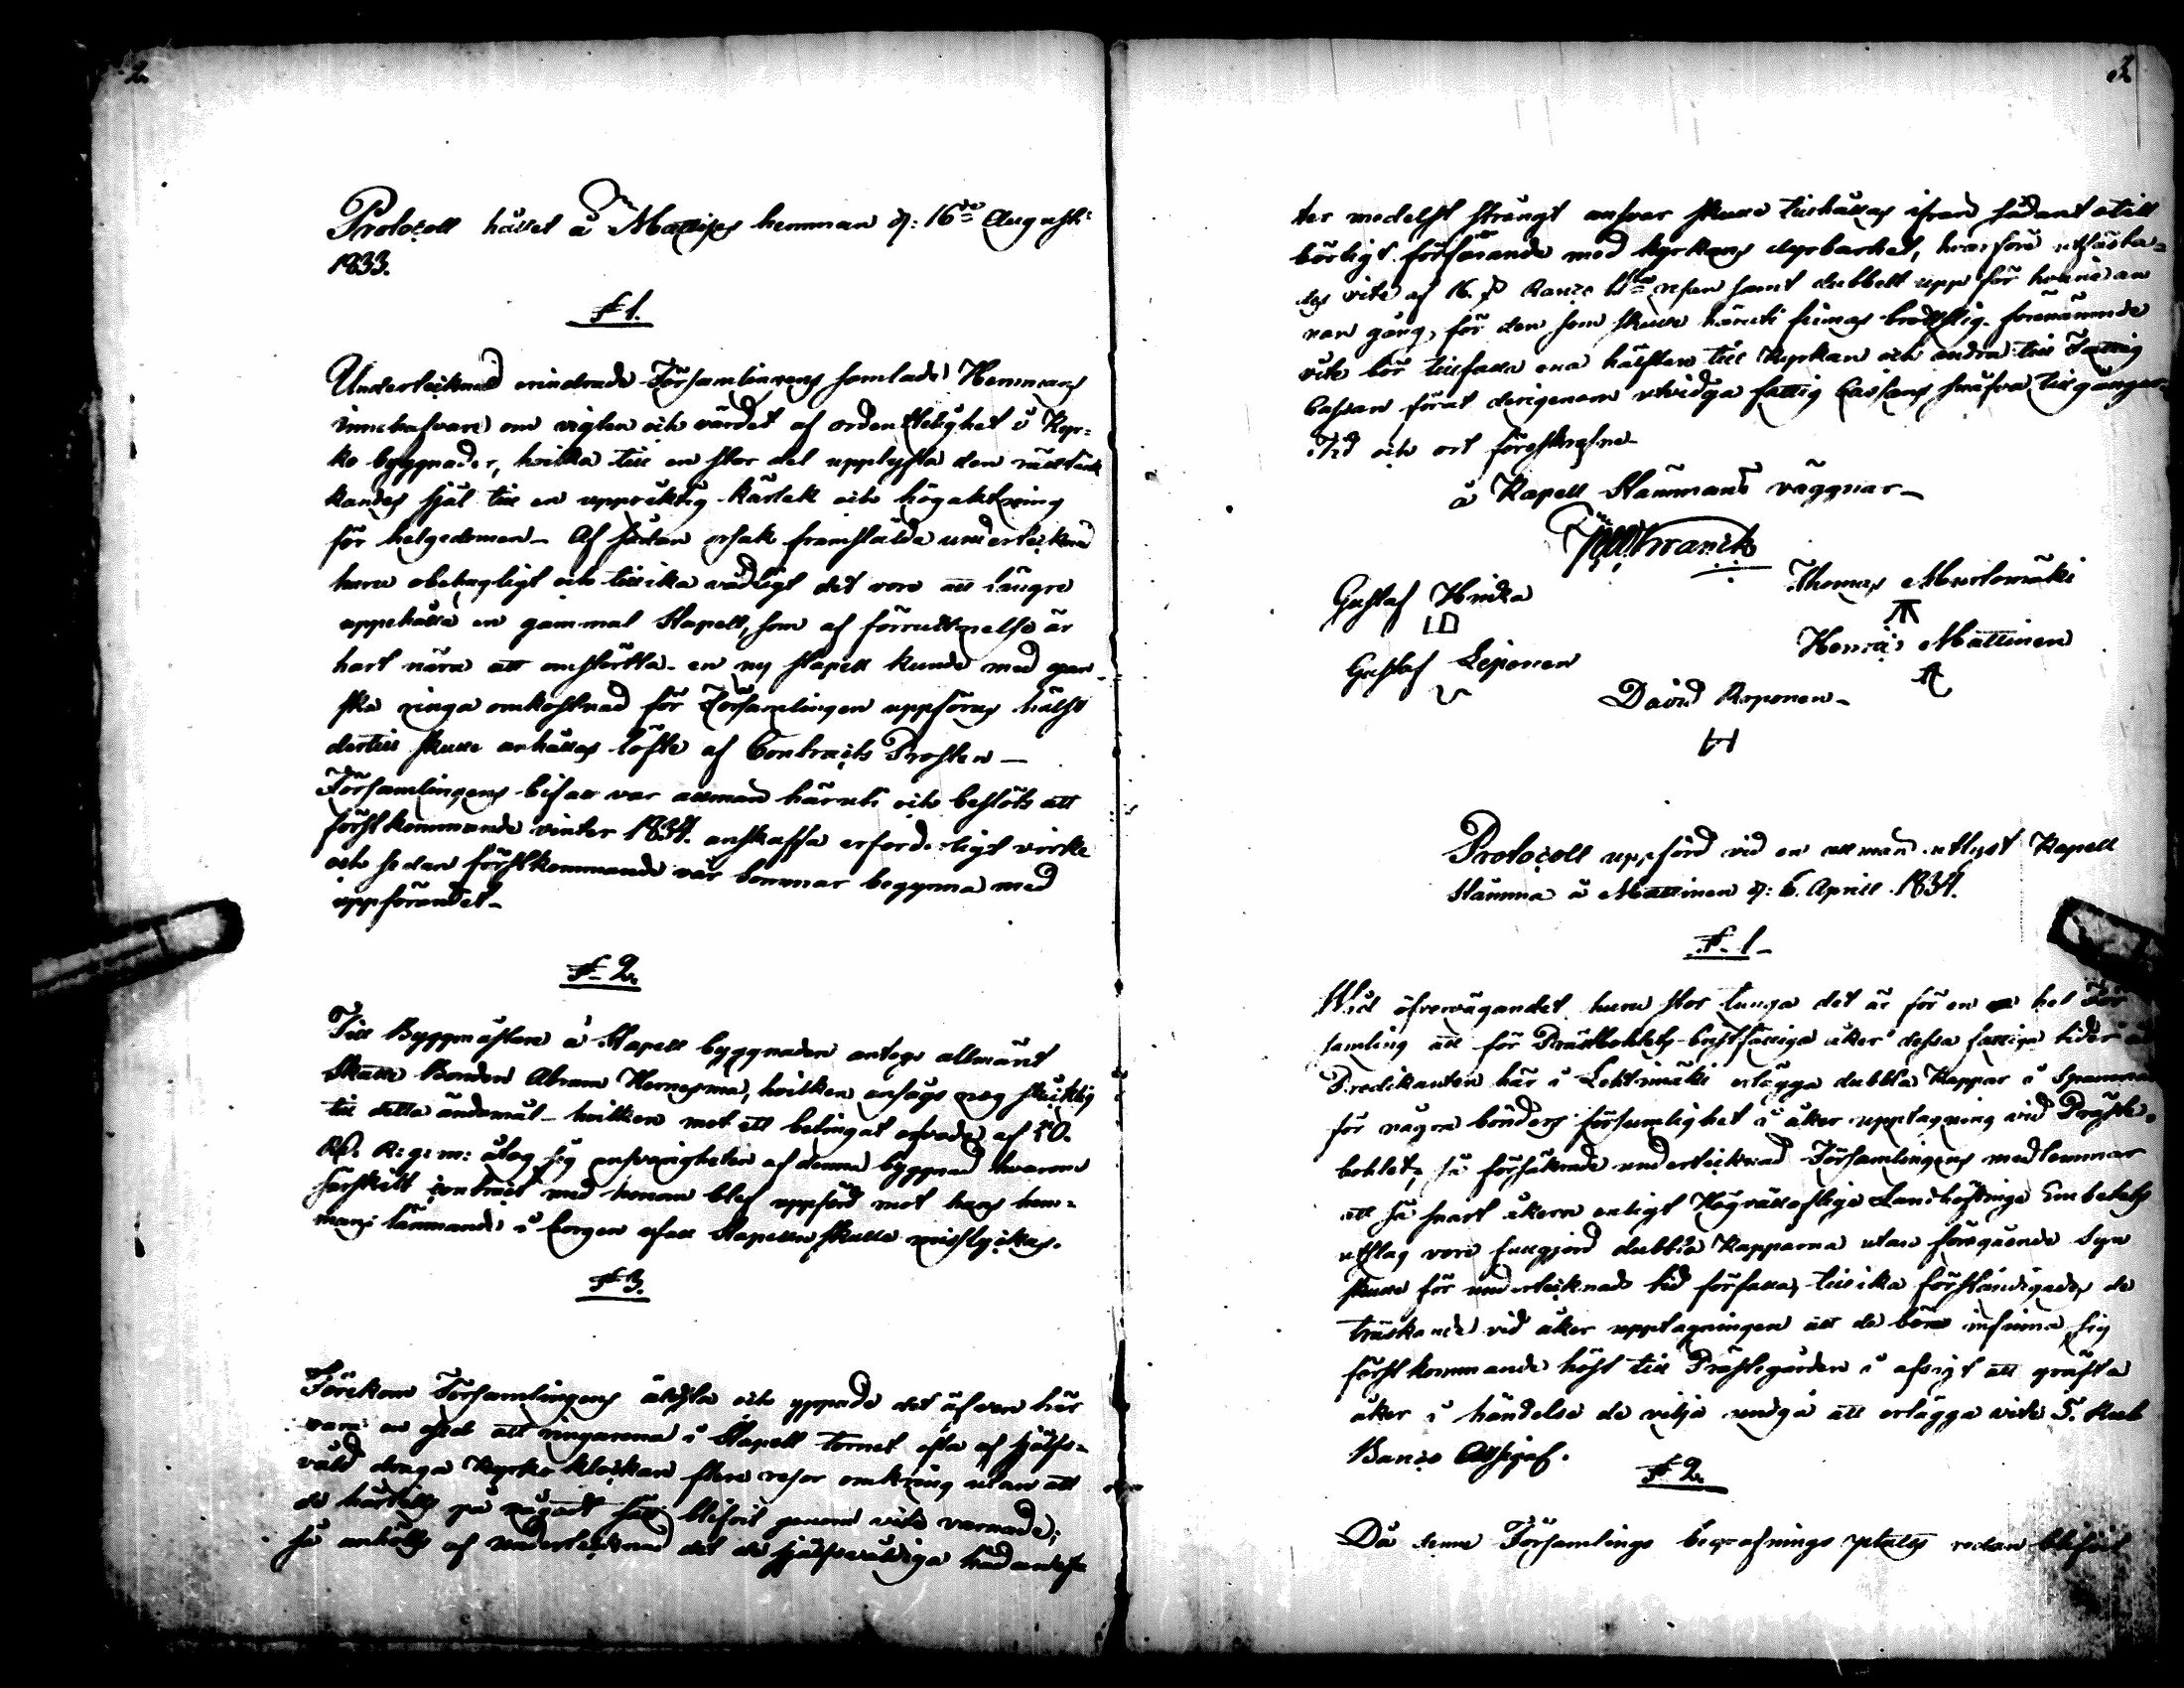 2
Protocoll hållet å Mattises hemman d: 16de Augusti
1833.
§ 1.
Undertecknad erindrade Församlingens samlade Hemmans
innehafvare om vigten och värdet af ordentelighet i Kyr-
ko byggnader, hvilka till en stor del upplyfta den rättänk
kandes själ till en uppriktig kärlek och högaktning
för helgedomen_ Af sådan orsak framstälde undertecknad
huru obehagligt och tillika vådligt det vore att längre
uppehålla en gammal Stapell, som af förruttnelse är
hart nära att omstörtta_ en ny stapell kunde med gan
ska ringa omkostnad för Församlingen uppföras hälst
dertill skulle anhållas löfte af Contracts Prosten_
Församlingens bifall var allmän häruti och beslöts att
först kommande vinter 1834. anskaffa erforderligt virke
och sedan förstkommande vår sommar begynna med
uppförandet_
§ 2.
Till Byggmästare å Stapell byggnaden antogs allmänt
Skatte Bonden Abram Hernesma, hvilken ansågs nog skicklig
till detta ändamål_ hvilken mot ett betingat arfvode af 50.
R:g:m: åtog sig ansvarigheten af denna byggnad hvarom
särskilt contract med honom blef uppförd mot hans hem-
mans lämmande i borgen ifall Stapelen skulle misslyckas.
§ 3.
Förekom Församlingens äldsta och yppade det äfven här
vara en osed att ringarena i Stapell tornet ofta af sjelfs-
våld draga Kyrko klockan flere resor omkring utan att
de härtills på något sätt blifvit genom vite varnade;
så anhölls af undertecknad det de sjelfsvåldiga hädanef-
3
ter medelst strängt ansvar skulle tillhållas ifrån sådant otill
börligt förfarande med kyrkans dyrbarhet, hvarföre utfästa-
des vite af 16. Banco 1sta resan samt dubbelt upp för hvarje an
nan gång, för den som skulle häruti finnas brottslig. förenämnde
vite bör tillfalla ena hälften till Kyrkan och andra till Fattig
Cassan förat derigenom utvidga fattig Cassans små tillgångar_
Tid och ort föreskrefne_
å Kapell Stämmans väggnar_
Gustaf Hirdka
Thomas Murtomäki
Gustaf Leponen
Henric Mattinen
David Roponen_
Protocoll uppförd vid en allmän utlyst Kapell
Stämma å Mattinen d: 6. April 1834.
§ 1_
Wid öfvervägandet huru stor tunga det är för en hel För
samling att för Prästbohlets bristfälliga åker dessa fattiga tider åt
Predikanten här i Lehtimäki erlägga dubbla Kappar i Spannmål
för några bönders försumlighet i åker upptagning vid Präste-
bohlet, så försäkrade undertecknad Församlingens medlemmar
att så snart åkern enligt Högvällofliga Landshöfdinge Embetets
utslag vore fullgjord dubbla Kapparna utan föregående Syn
skulle för undertecknads tid förfalla, tillika förständigades de
tröskande vid åker upptagningen att de böra infinna sig
först kommande höst till Prästegården i afsigt att gräfta
åker i händelse de vilja undgå att erlägga vite 5. Rub
Banco Assign.
§ 2.
Då denne Församlings begrafnings platts redan blifvit